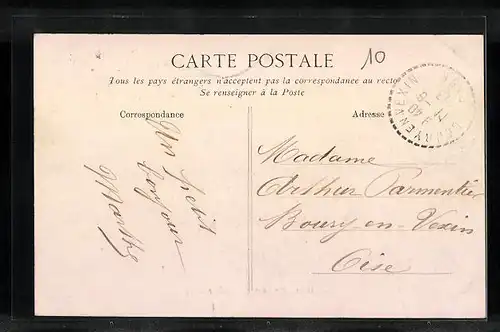 10
CARTE POSTALE
Tous les pays étrangers n'acceptent pas la correspondance au recto
Se renseigner à la Poste
Correspondance
Un petit
bonjour
Marthe
Adresse
Madame
Arthur Parmentier
Boury-en-Vexin
Oise